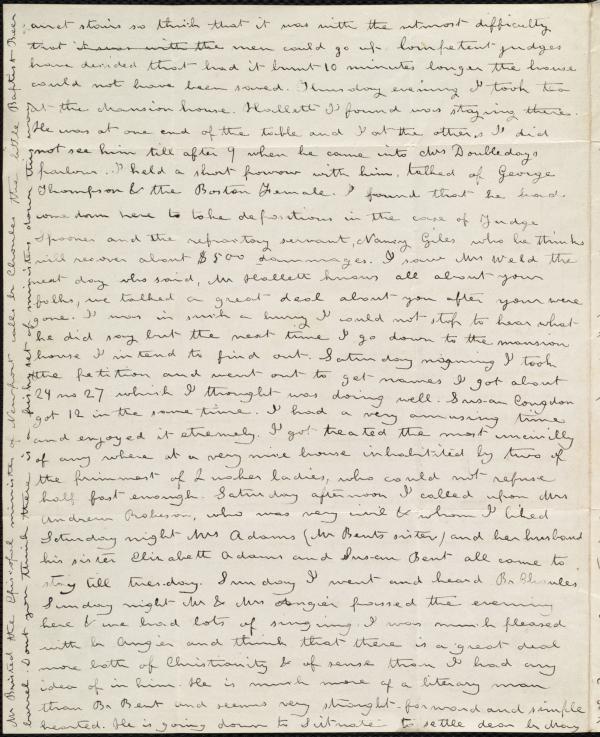 and stairs so thick that it was with the utmost difficulty
that I was with the men could go up. Competent judges
have decided that had it burnt 10 minutes longer the house
could not have been saved. Thursday evening I took tea
at the Mansion house. Hallett I found was staying there.
He was at one end of the table and I at the other, & I did
not see him till after 9 when he came into Mrs Doubledays
parlour. I held a short powow with him, talked of George
Thompson & the Boston Female. I found that he had
come down here to take depositions in the case of Judge
Spooner and the refractory servant, Nancy Giles who he thinks
will recover about $500 dammages. I saw Mrs Weld the
next day who said, Mr Hallett knows all about your
folks, we talked a great deal about you after you were
gone. I was in such a hurry I could not stop to hear what
he did say but the next time I go down to the mansion
house I intend to find out. Saturday morning I took
the petition and went out to get names I got about
24 no 27 which I thought was doing well. Susan Congdon
got 12 in the same time. I had a very amusing time
and enjoyed it etremely. I got treated the most uncivilly
of any where at a very nice house inhabitited by two of
the primmest of Quaker ladies, who could not refuse
half fast enough. Saturday afternoon I called upon Mrs
Andrew Robeson, who was very civil & whom I liked
Saturday night Mrs Adams (Mr Bents sister) and her husband
his sister Elizabeth Adams and Susan Bent all came to
stay till tuesday. Sunday I went and heard Br Choules
Sunday night Mr & Mrs Angier passed the evening
here & we had lots of singing. I was much pleased
with br Angier and think that there is a great deal
more both of Christianity & of sense than I had any
idea of in him He is much more of a literary man
than Br Bent and seems very straight-forward and simple
hearted. He is going down to Scituate to settle dear br May
Mr Bristed the Episcopal minister of Newport calls br Choules the little Baptist Beer
barrel. Dont you think there is a set of ministers down this way